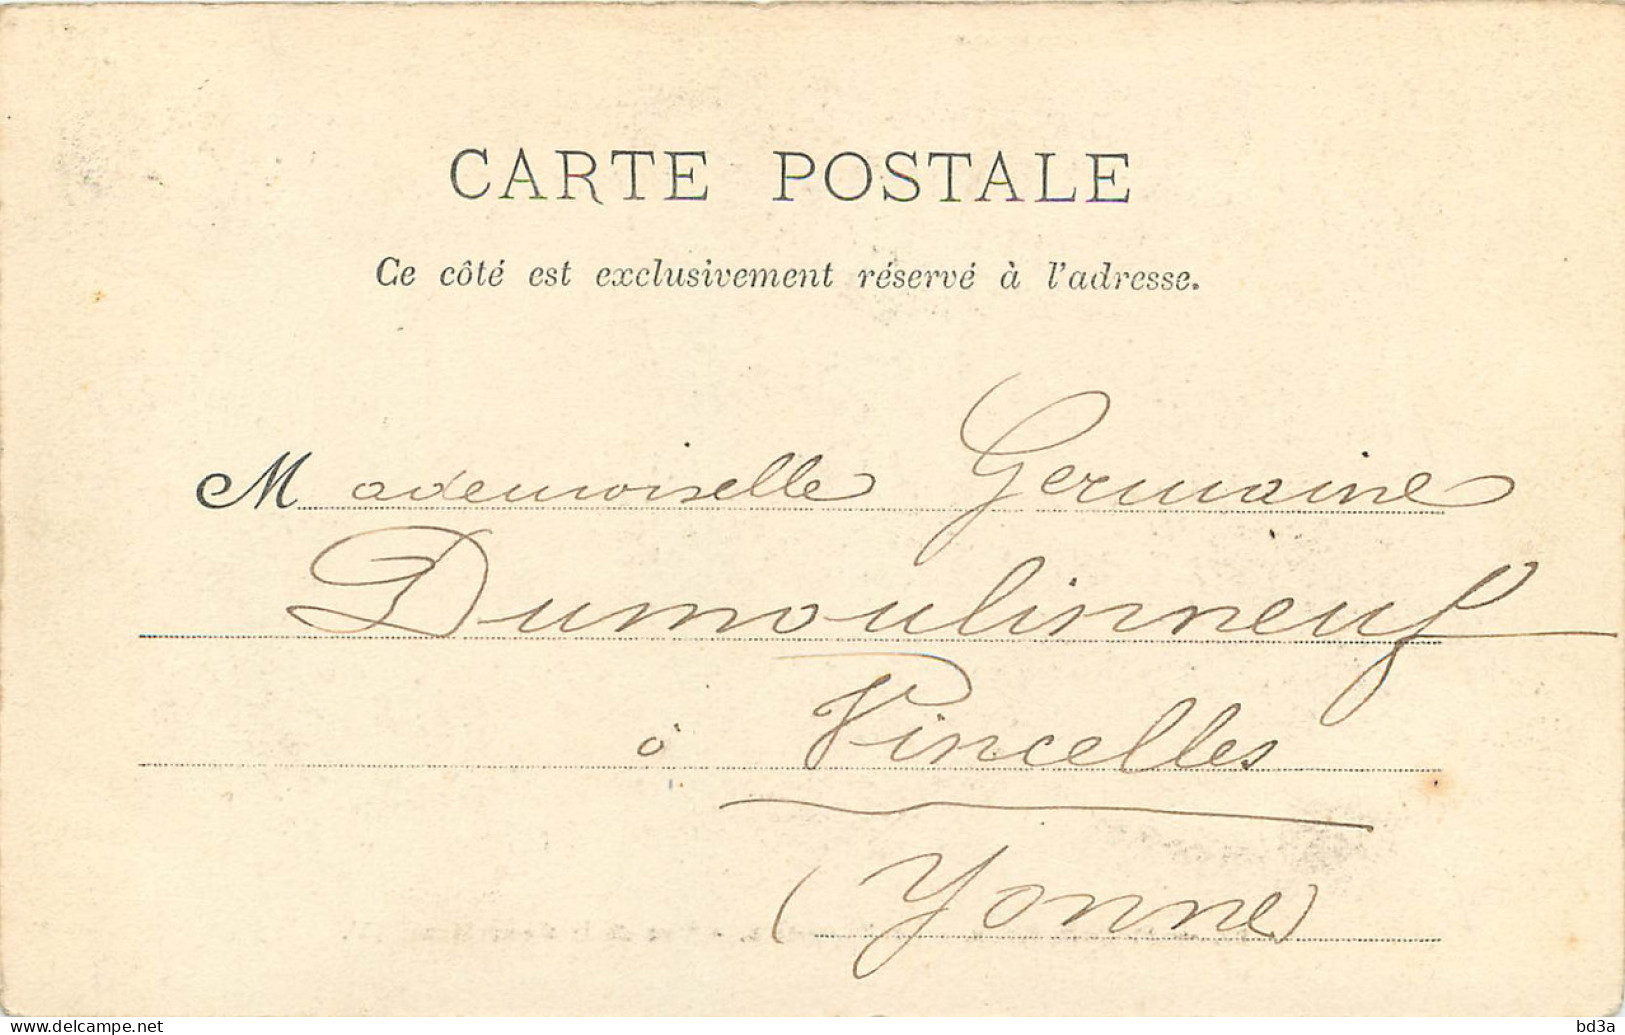 CARTE POSTALE
Ce côté est exclusivement réservé à l'adresse.
Mademoiselle Germaine
Dumoulinneuf
à Vincelles
(Yonne)
www.delcampe.net
bd3a